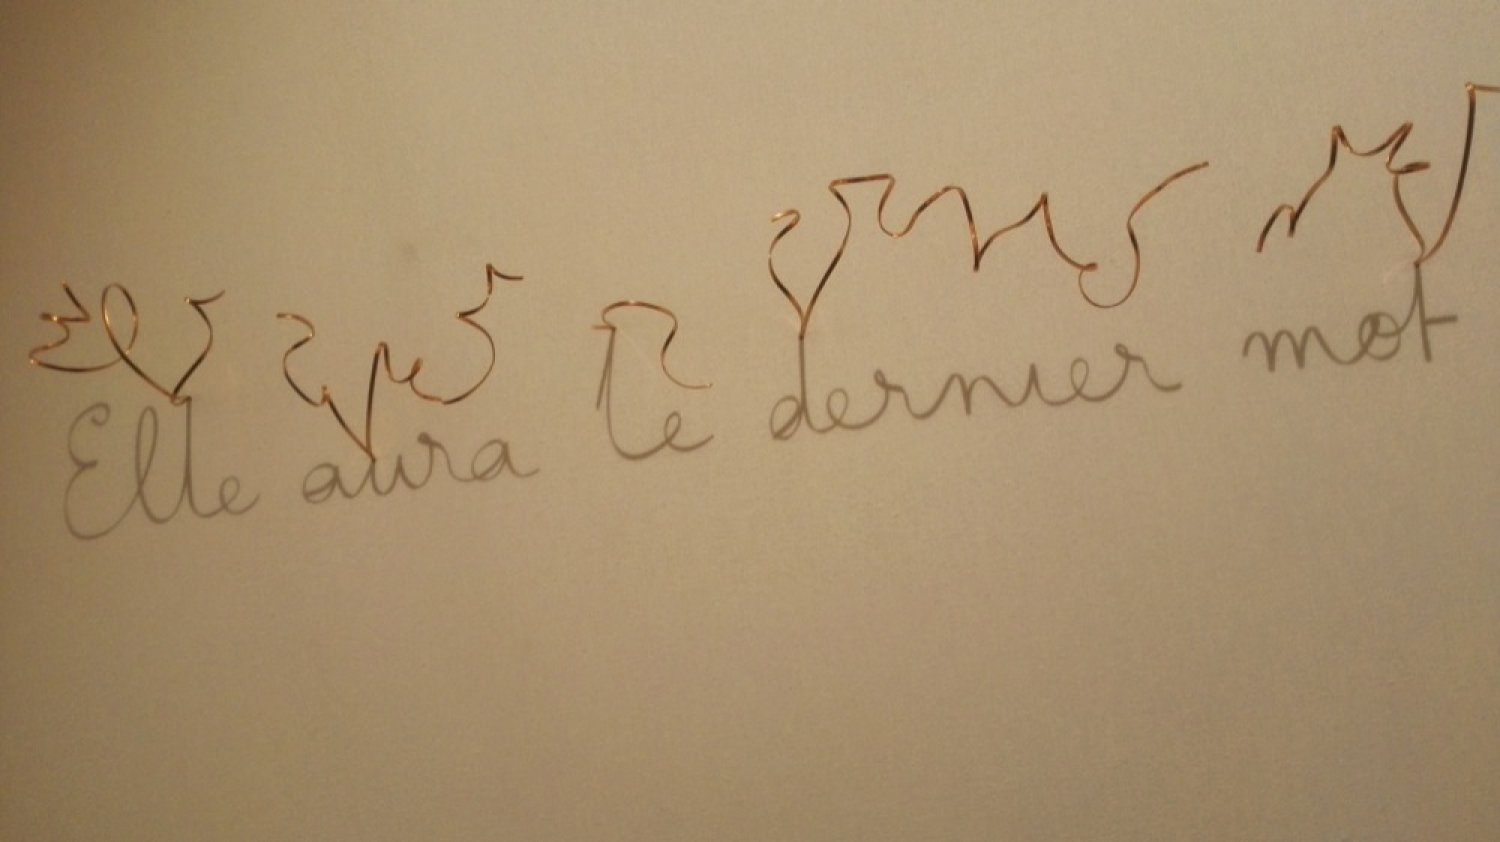 Elle aura le dernier mot